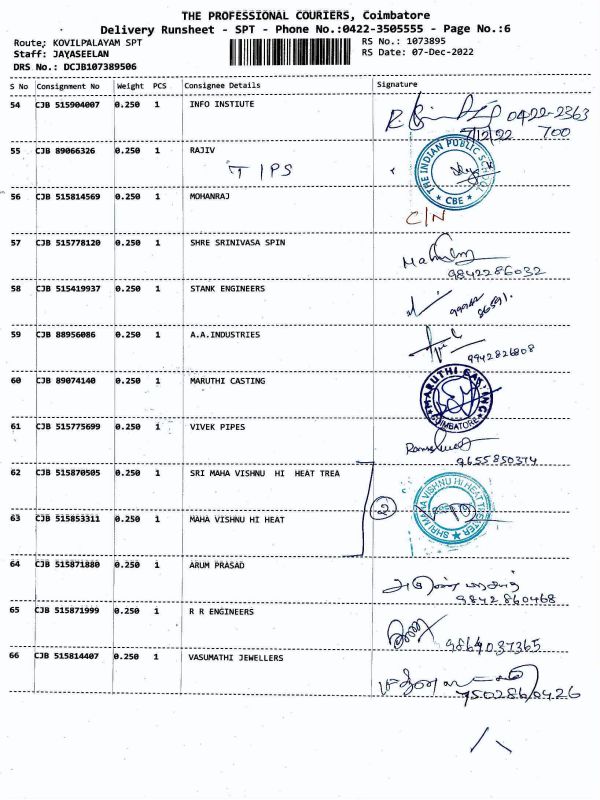 THE PROFESSIONAL COURIERS, Coimbatore
Delivery Runsheet - SPT - Phone No.:0422-3505555 - Page No.:6
Route: KOVILPALAYAM SPT
Staff: JAYASEELAN
DRS No.: DCJB107389506
RS No.: 1073895
RS Date: 07-Dec-2022
S No Consignment No Weight PCS Consignee Details Signature
54 CJB 515904007 0.250 1 INFO INSTIUTE
0422-2363
7/12/22 700
55 CJB 89066326 0.250 1 RAJIV
TIPS
THE INDIAN PUBLIC SCHOOL
★ CBE ★
56 CJB 515814569 0.250 1 MOHANRAJ
C/N
57 CJB 515778120 0.250 1 SHRE SRINIVASA SPIN
9842286032
58 CJB 515419937 0.250 1 STANK ENGINEERS
59 CJB 88956086 0.250 1 A.A.INDUSTRIES
9942826808
60 CJB 89074140 0.250 1 MARUTHI CASTING
MARUTHI
COIMBATORE
61 CJB 515775699 0.250 1 VIVEK PIPES
9655850374
62 CJB 515870505 0.250 1 SRI MAHA VISHNU HI HEAT TREA
2
SHRI MAHA VISHNU HI HEAT TREATER
63 CJB 515853311 0.250 1 MAHA VISHNU HI HEAT
64 CJB 515871880 0.250 1 ARUM PRASAD
9842860468
65 CJB 515871999 0.250 1 R R ENGINEERS
9864037365
66 CJB 515814407 0.250 1 VASUMATHI JEWELLERS